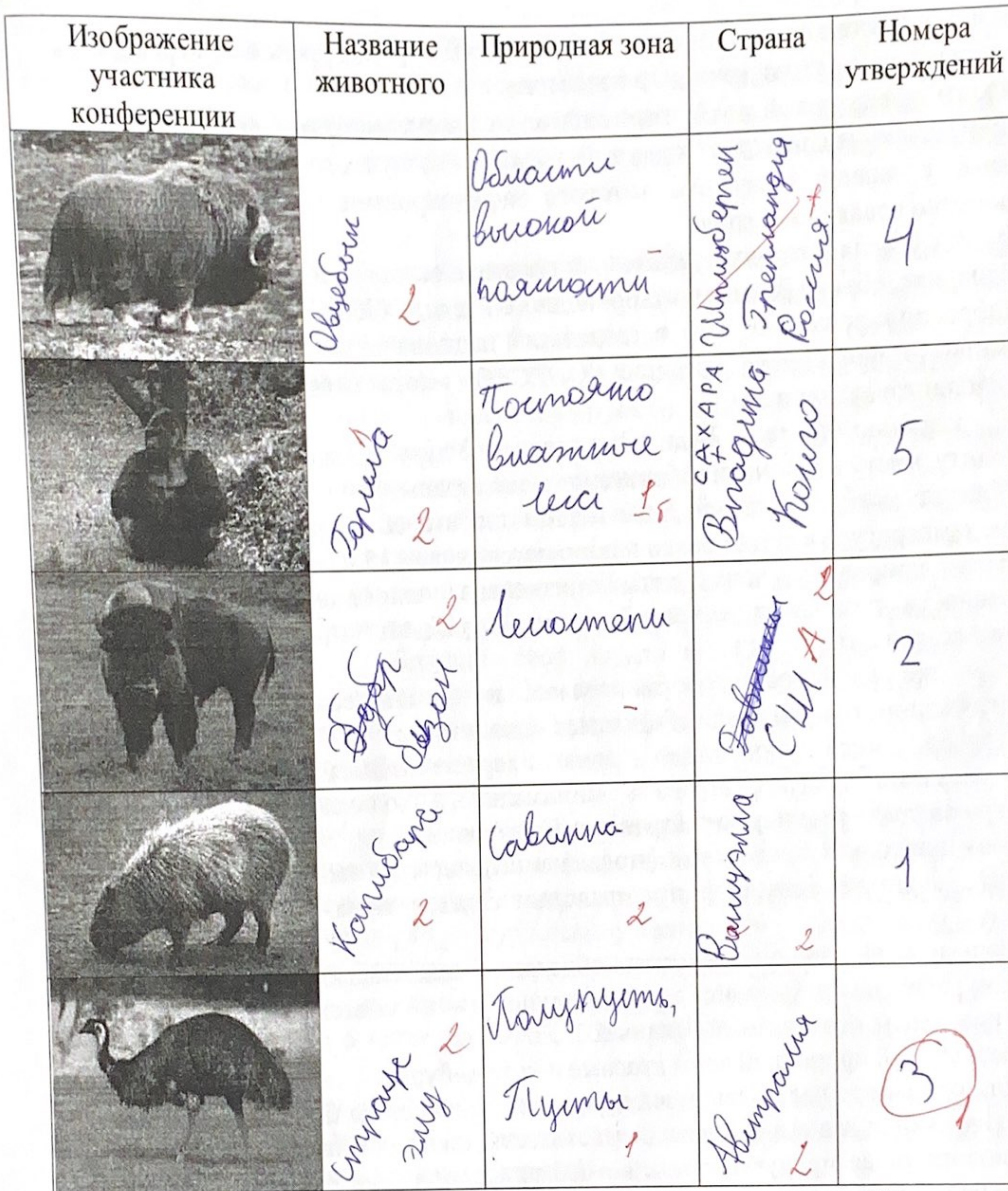 Изображение
участника
конференции
Название
животного
Природная зона
Страна
Номера
утверждений
Овцебык
2
Области
высокой
поясности
-
Шпицберген
Гренландия
Россия +
4
Горилла
2
Постоянно
влажные
леса 1
САХАРА
Впадина
Конго
5
Зубр
бизон
2
Лесостепи
-
США
2
2
Капибара
2
Саванна
2
Венесуэла
2
1
страус
эму
2
Полупусть,
Пусты
1
Австралия
2
3